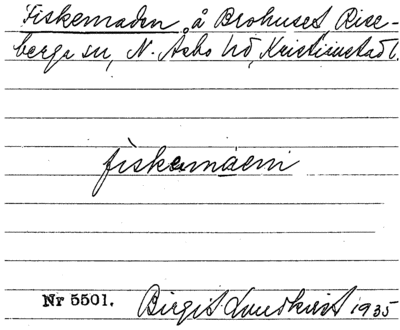 Fiskemaden å Brohuset Rise-
berga sn, N. Åsbo hd, Kristianstad l.
fiskemaen
Nr 5501. Birgit Lundkvist 1935